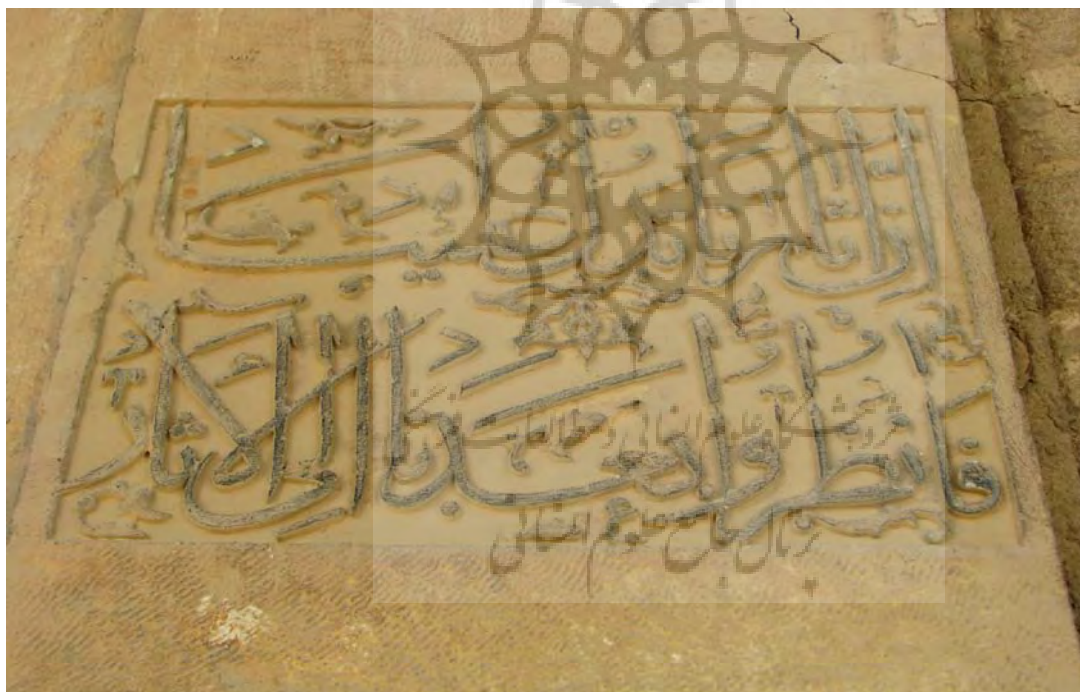 إن آثارنا تدل علينا
فانظروا بعدنا إلى الآثار
پژوهشگاه علوم انسانی و مطالعات فرهنگی
پرتال جامع علوم انسانی